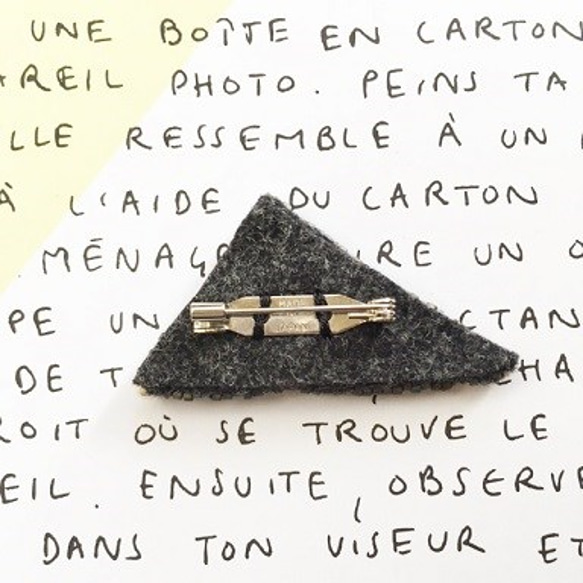 UNE BOÎTE EN CARTON
AREIL PHOTO. PEINS TA
LLE RESSEMBLE À UN
À L'AIDE DU CARTON
MÉNAG RE UN
PE UN CTAN
DE T CHA
ROIT OÙ SE TROUVE LE
EIL. ENSUITE, OBSERVE
DANS TON VISEUR ET
MADE
JAPAN